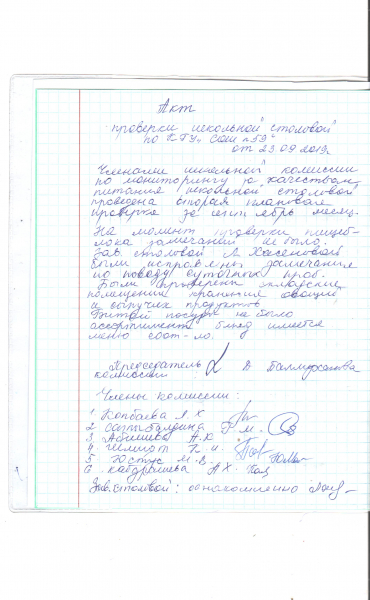 Акт
проверки школьной столовой
по КГУ „ СОШ №59"
от 23.09.2019г
Членами школьной комиссии
по мониторингу за качеством
питания школьной столовой
проведена вторая плановая
проверка за сентябрь месяц.
На момент проверки пищеб-
лока замечаний не было.
Зав. столовой Л. Хасеновой
были исправлены замечания
по поводу суточных проб.
Были проверены складские
помещения хранения овощей
и сыпучих продуктов
Битой посуды не было
ассортимент блюд имеется
меню соот-ло.
Председатель
комиссии
Члены комиссии:
1. Копбаева А Х
2 Сатыбалдина Г М.
3 Абишева А. К
4
5. Юстус М. В.
6. Х.
Зав. столовой: ознакомлена